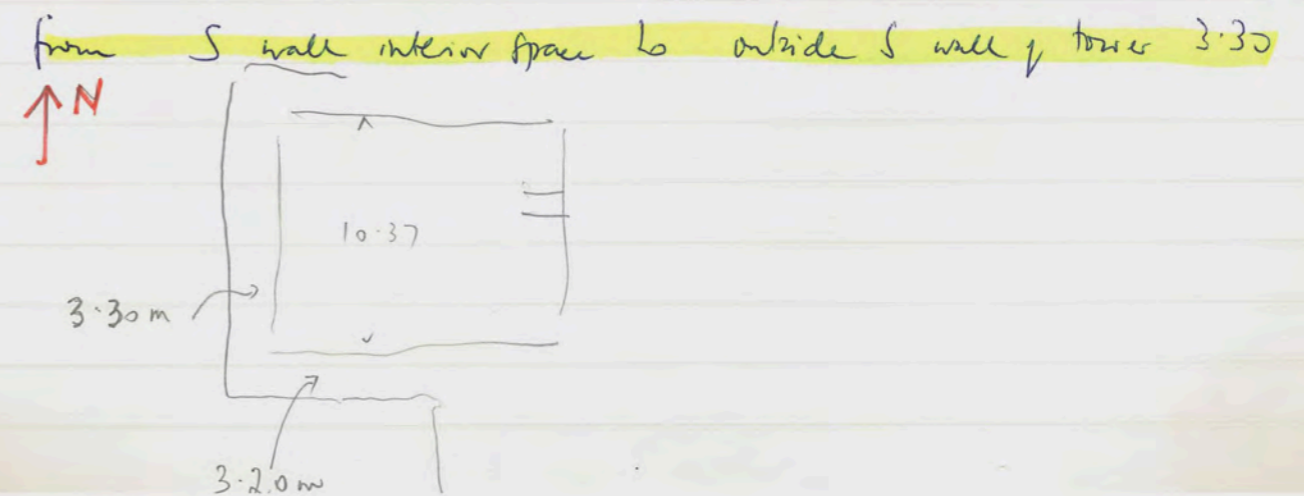 from S wall interior space to outside S wall of tower 3.30
N
10.37
3.30m
3.20m